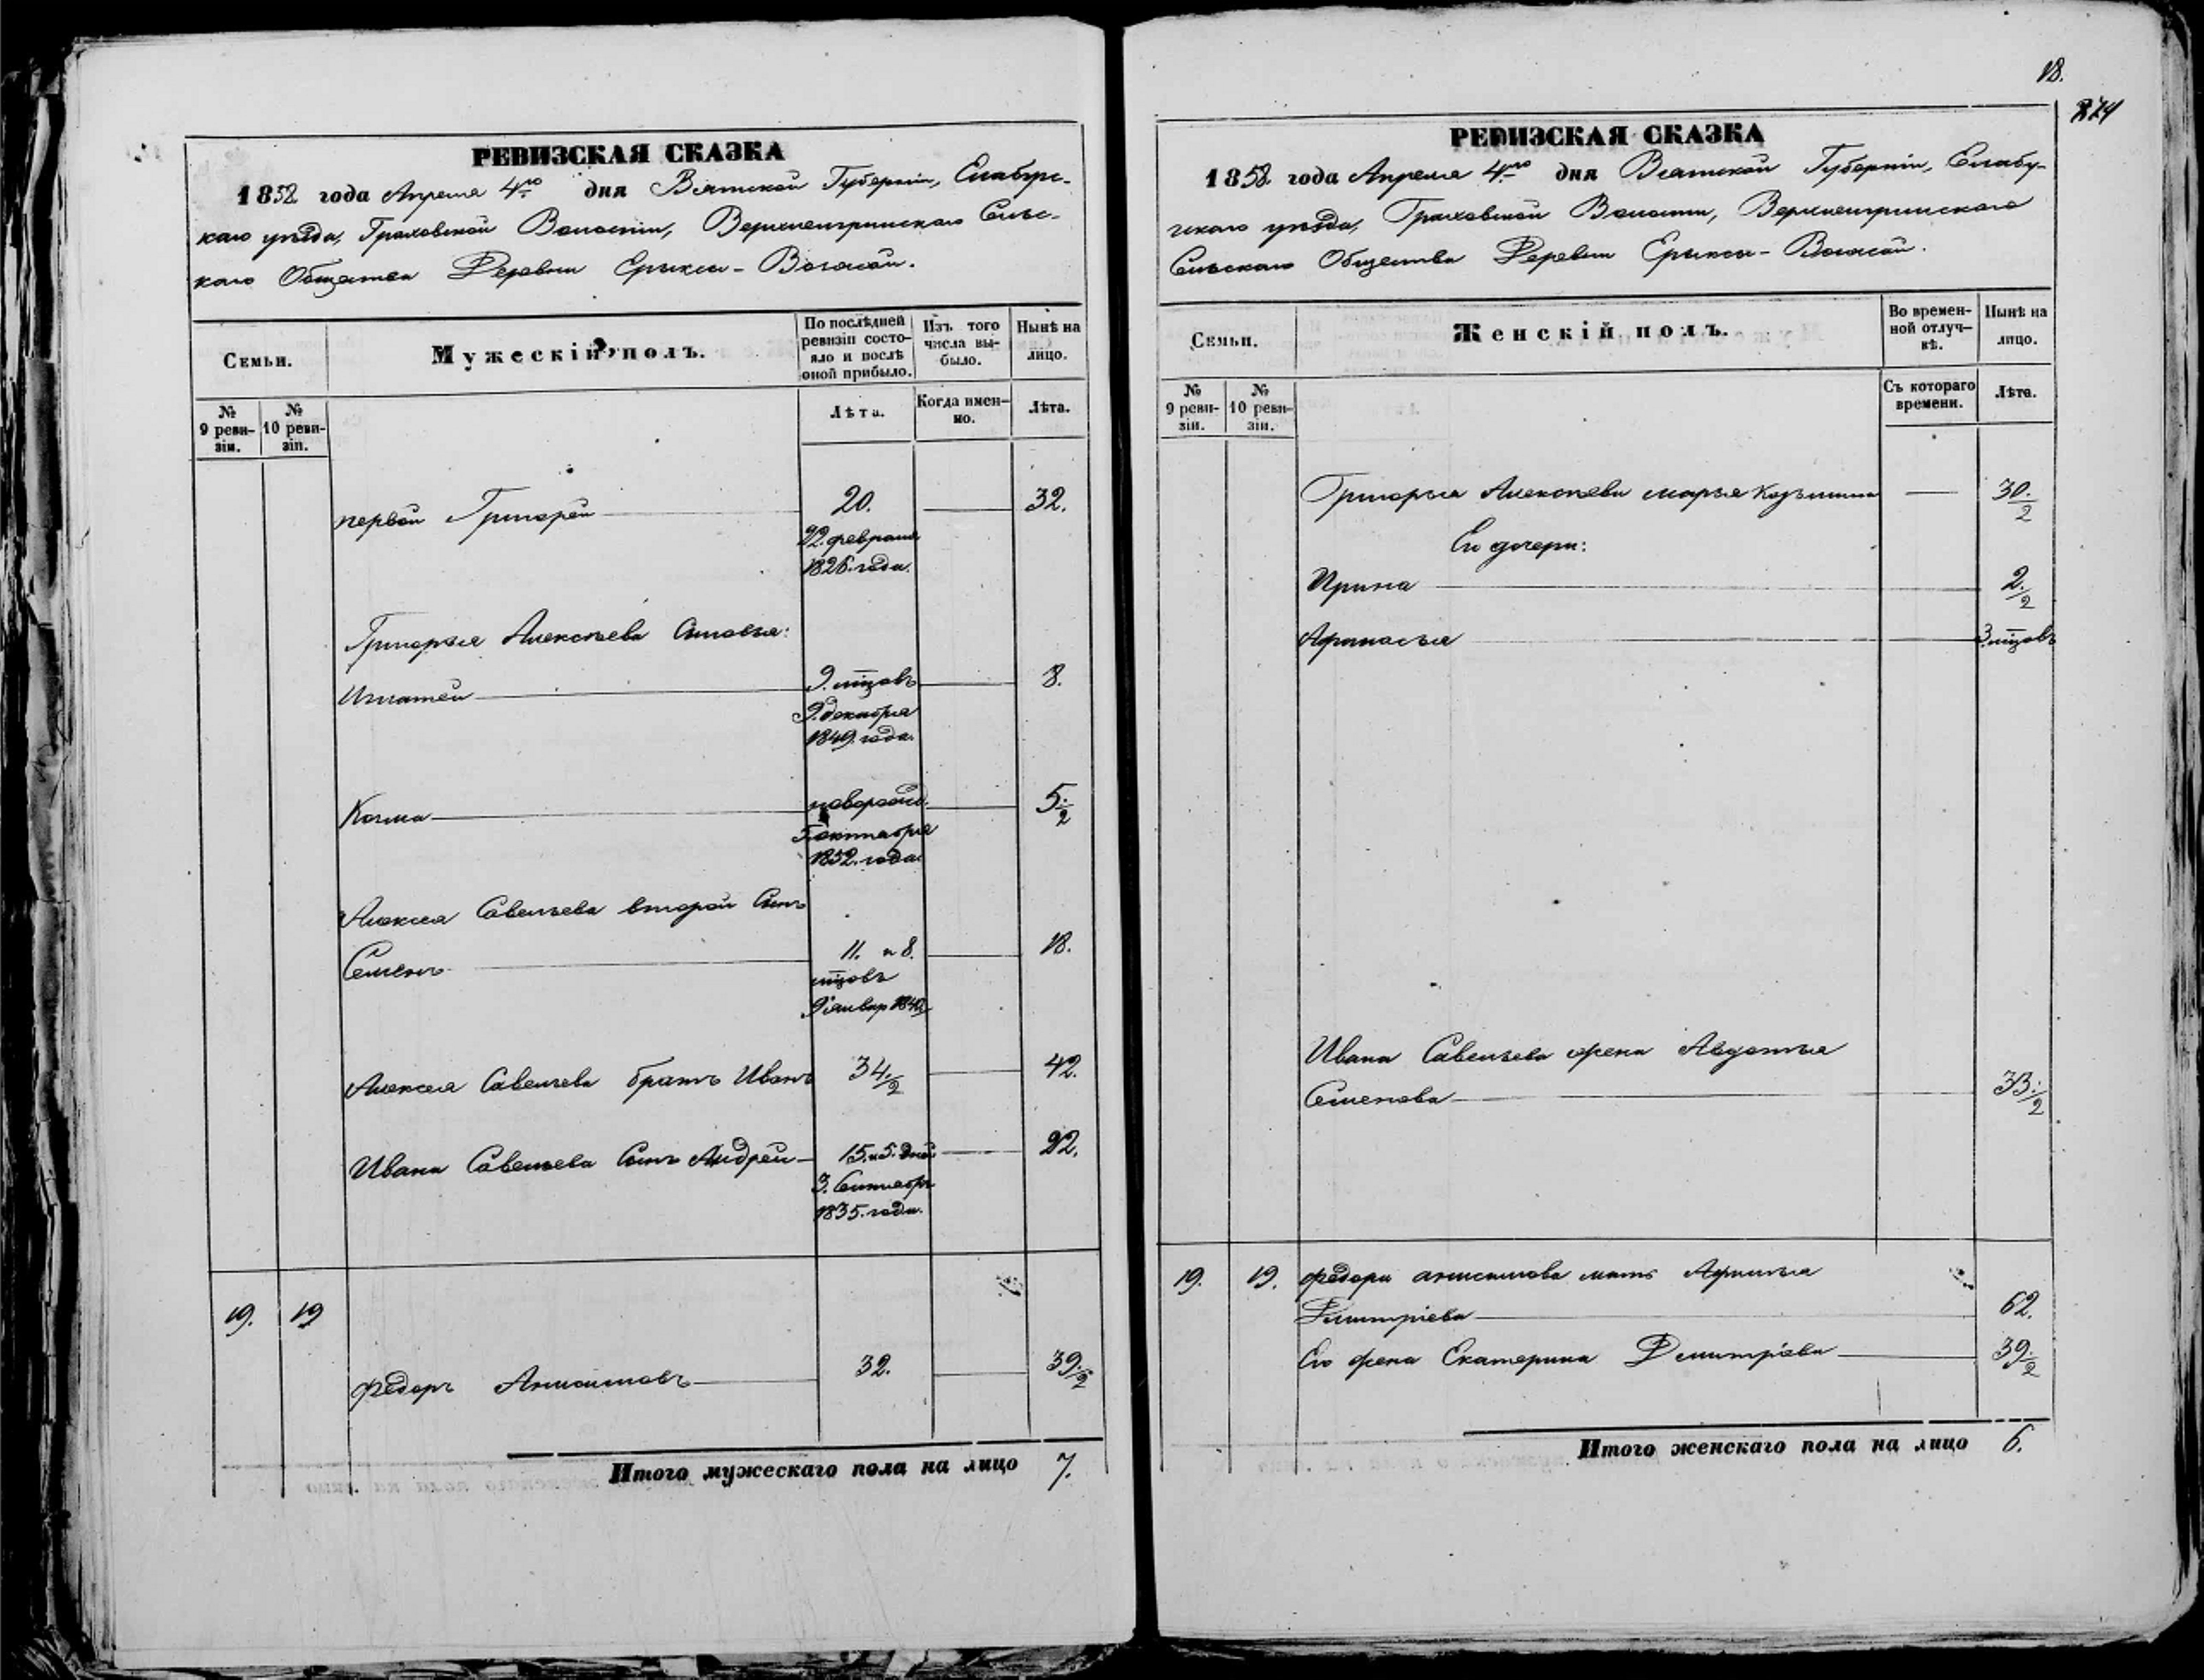 РЕВИЗСКАЯ СКАЗКА
1858 года Апреля 4го дня Вятской Губернiи, Елабуж-
скаго уѣзда, Граховской Волости, Верхнеигринскаго Сельс-
каго Общества Деревни Ерыксы-
Семьи.
Мужескiй полъ.
По послѣдней
ревизiи состо-
яло и послѣ
оной прибыло.
Изъ того
числа вы-
было.
Нынѣ на
лицо.
№
9 реви-
зiи.
№
10 реви-
зiи.
Лѣта.
Когда имен-
но.
Лѣта.
первой Григорей 20. 32.
22. февраля
1826. года.
Григорья Алексѣева Сыновья:
Игнатей 9. мцовъ 8.
9. декабря
1849. года.
Козма новорожд. 5 1/2
5. октября
1852. года
Алексея Савельева второй Сынъ
Семенъ 11. и 8. 18.
мцовъ
9 январ
Алексея Савельева братъ Иванъ 34 1/2 42.
Ивана Савельева Сынъ Андрей 15. и 5. дней 22.
3. Сентябр
1835. года.
19. 19
Федоръ Анисимовъ 32. 39 1/2
Итого мужескаго пола на лицо 7.
18.
274
РЕВИЗСКАЯ СКАЗКА
1858 года Апреля 4го дня Вятской Губернiи, Елабу-
жскаго уѣзда, Граховской Волости, Верхнеигринскаго
Сельскаго Общества Деревни Ерыксы-
Семьи.
Женскiй полъ.
Во времен-
ной отлуч-
кѣ.
Нынѣ на
лицо.
№
9 реви-
зiи.
№
10 реви-
зiи.
Съ котораго
времени.
Лѣта.
Григорья Алексѣева Марья Козьмина 30. 1/2
Его дочери:
Ирина 2. 1/2
Афанасья 3. мцовъ
Ивана Савельева жена Авдотья
Семенова 33. 1/2
19. 19. Федора Анисимова мать
Дмитрiева 62.
Его жена Екатерина Дмитрiева 39. 1/2
Итого женскаго пола на лицо 6.